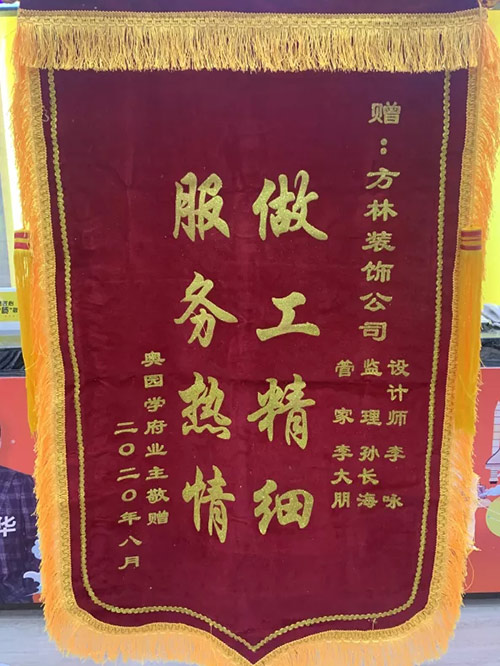 赠：方林装饰公司
设计师 李 咏
监 理 孙长海
管 家 李大朋
做工精细
服务热情
奥园学府业主敬赠
二〇二〇年八月
华